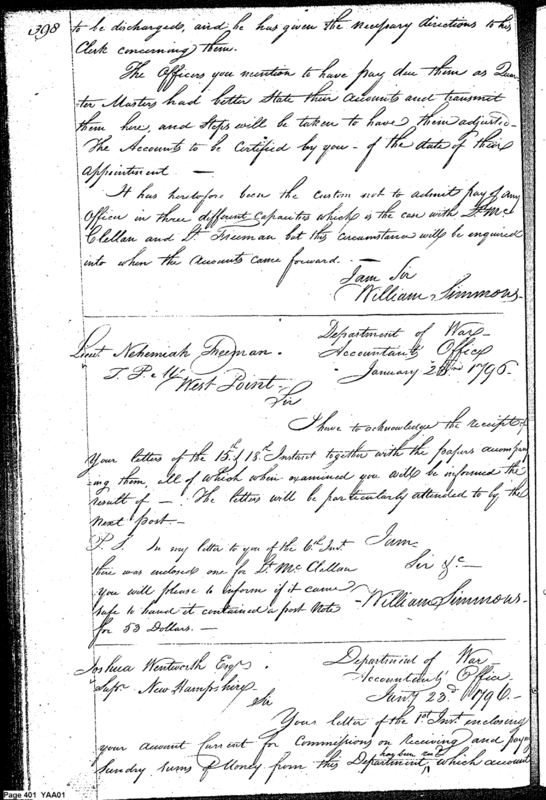 398
to be discharged, and he has given the necessary directions to his
Clerk concerning them.
The Officers you mention to have pay due them as Quar
ter Masters had better State their Accounts and transmit
them here, and steps will be taken to have them adjusted—
The Accounts to be Certified by you — of the date of their
appointment —
It has heretofore been the custom not to admit pay of any
Officer in three different Capacities which is the case with Lt. Mc
Clellan and Lt. Freeman but this circumstance will be enquired
into when the accounts came forward. —
I am Sir
William Simmons
Department of War
Lieut Nehemiah Freeman.
Accountants Office
January 23d 1796
West Point
Sir
I have to acknowledge the receipt of
Your letters of the 15th & 18th Instant together with the papers accompany
=ing them, all of which when examined you will be informed the
result of — The letters will be particularly attended to by the
next post—
P.S. In my letter to you of the 6th Inst. I am
there was enclosed one for Lt. McClellan Sir &c—
you will please to inform if it came
safe to hand it contained a post Note William Simmons
for 53 Dollars. —
Joshua Wentworth Esqr. Department of War
Supr. New Hampshire Accountants Office
Sir Jany 23d 1796
Your letter of the 1st Inst. enclosing
your account Current for Commissions on receiving and paying
has been recd
Sundry sums of Money from this Department, which account
Page 401 YAA01